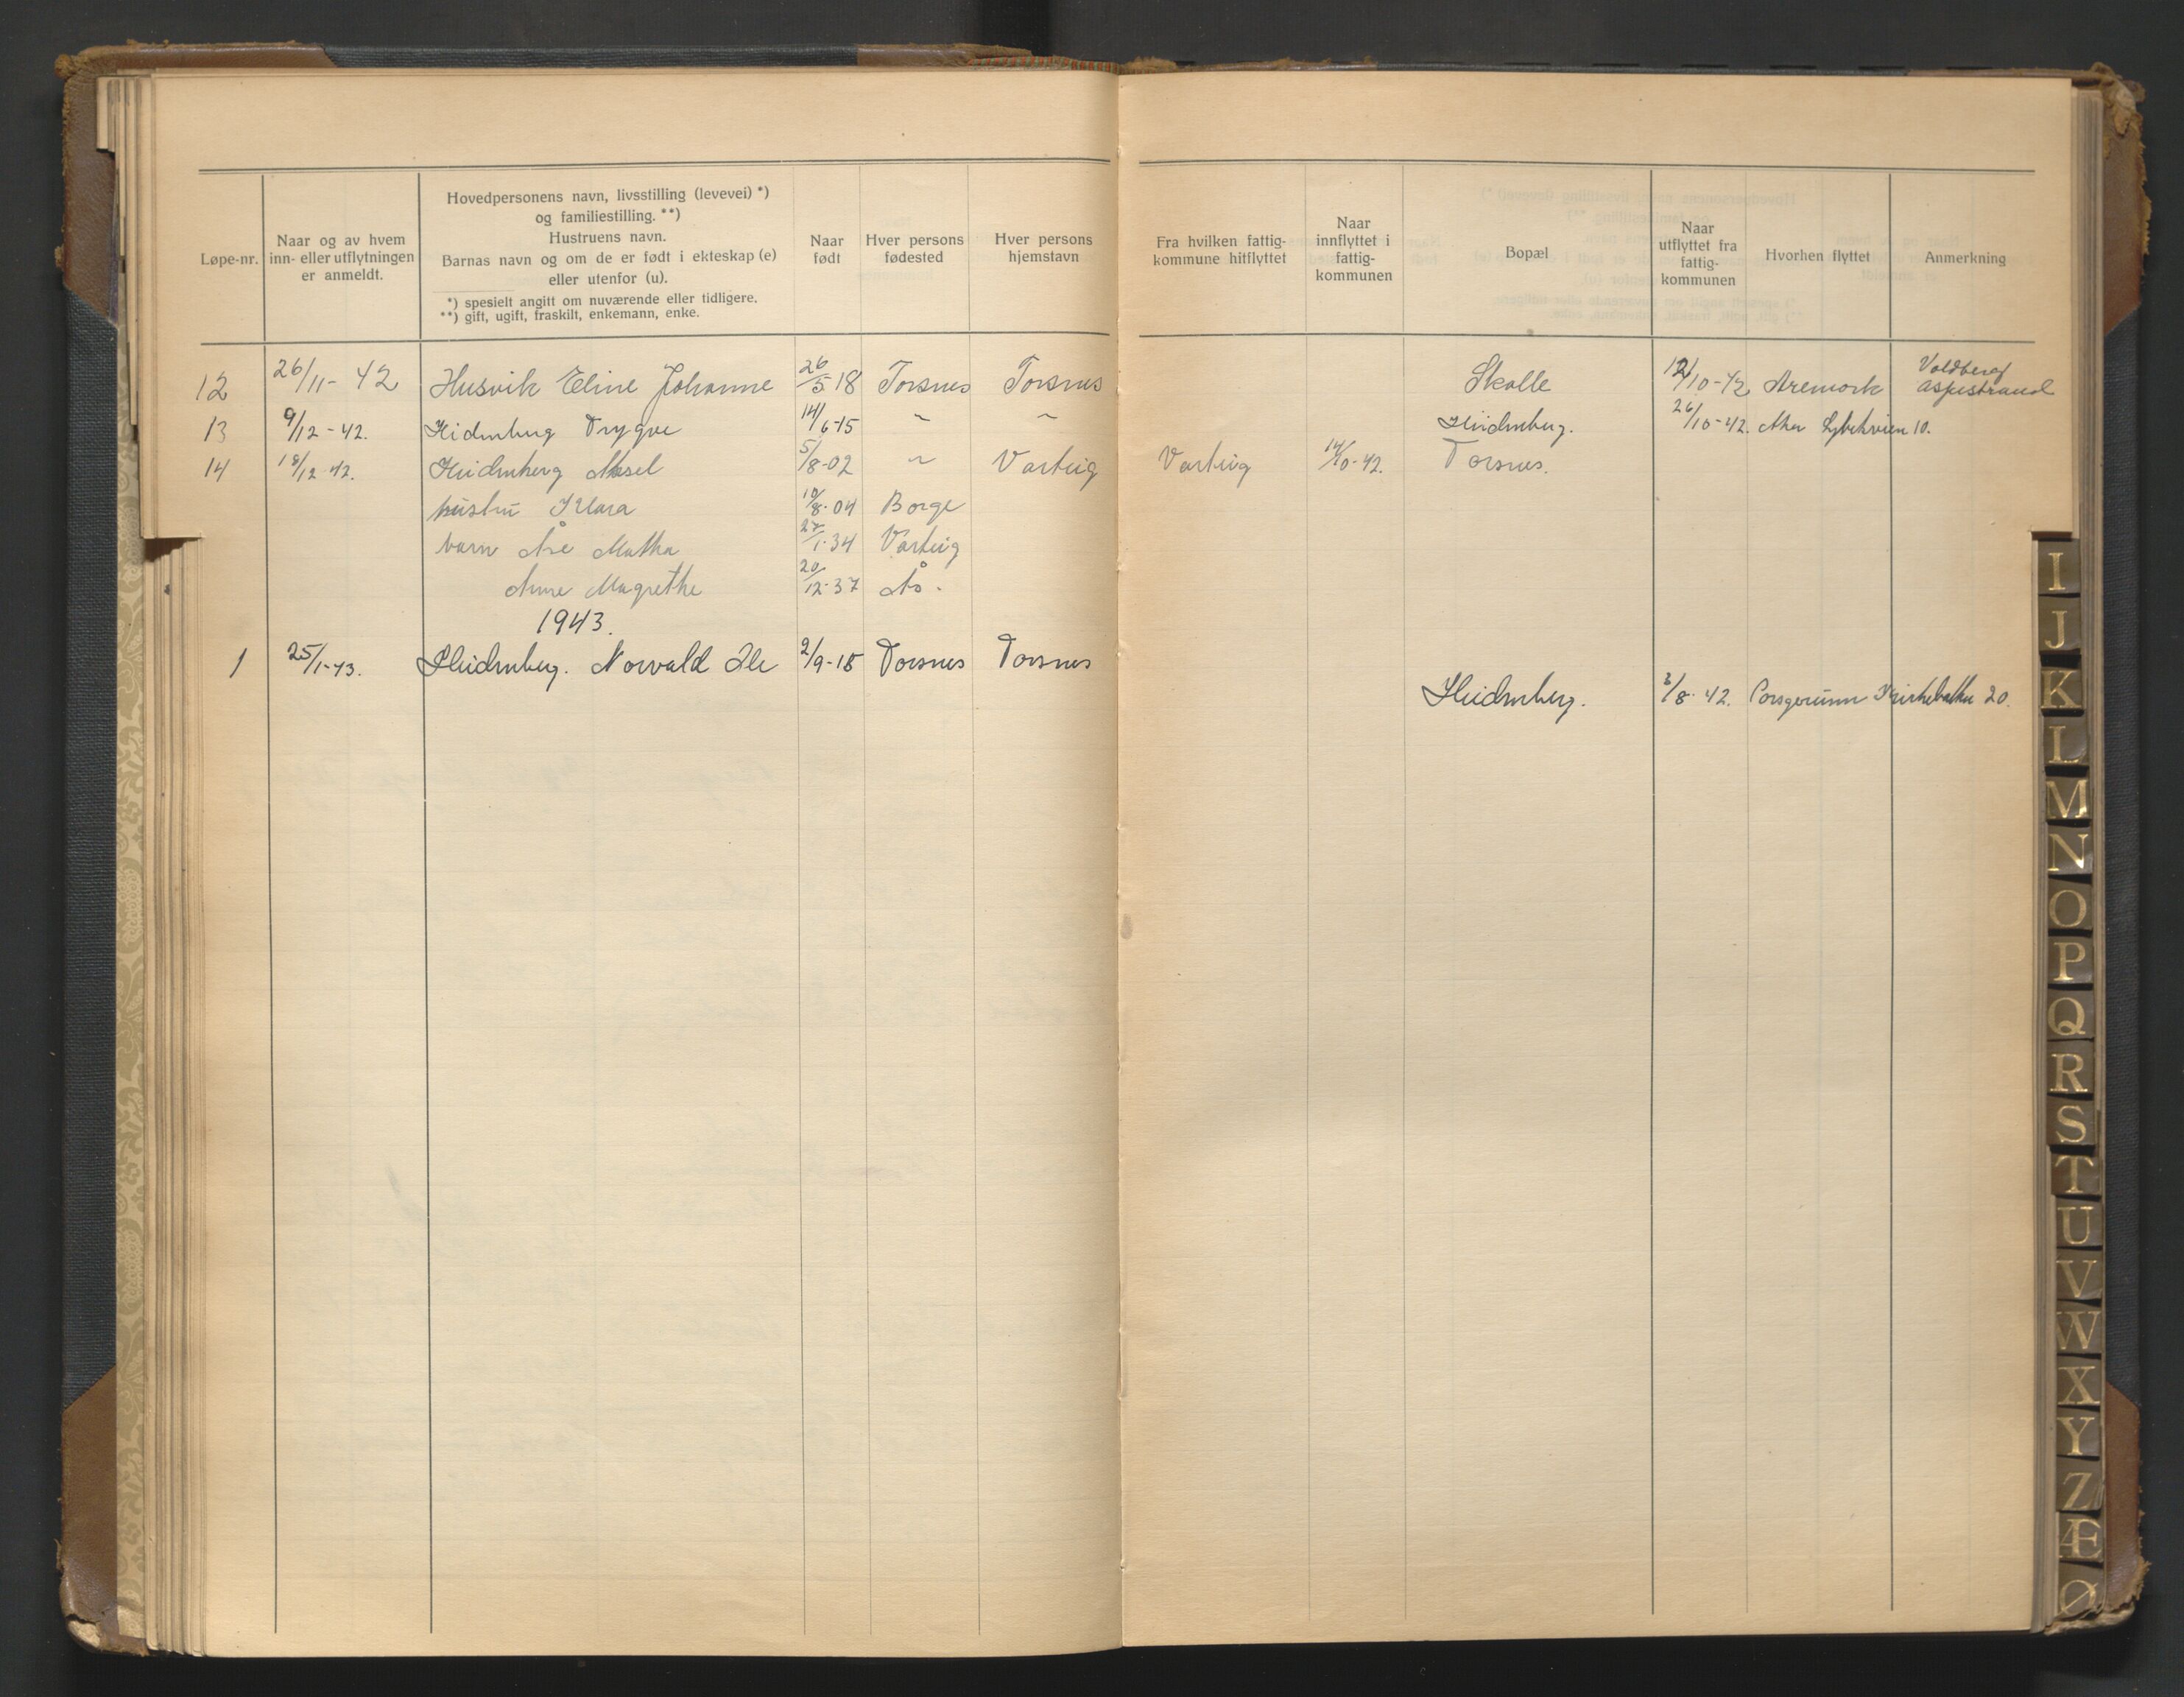 Løpe-nr.
Naar og av hvem
inn- eller utflytningen
er anmeldt.
Hovedpersonens navn, livsstilling (levevei) *)
og familiestilling. **)
Hustruens navn.
Barnas navn og om de er født i ekteskap (e)
eller utenfor (u).
*) spesielt angitt om nuværende eller tidligere.
**) gift, ugift, fraskilt, enkemann, enke.
Naar
født
Hver persons
fødested
Hver persons
hjemstavn
Fra hvilken fattig-
kommune hitflyttet
Naar
innflyttet i
fattig-
kommunen
Bopæl
Naar
utflyttet fra
fattig-
kommunen
Hvorhen flyttet
Anmerkning
12 26/11-42 Husvik Eline Johanne 26/5 18 Torsnes Torsnes Skolle /10-42 Aremark Voldberg
Aspestrand
13 9/12-42. Trygve 14/6-15 " " 26/10-42. Aker 10.
14 18/12-42. Heidenberg 5/8-02 " Varteig Varteig 14/10-42. Torsnes.
hustru Klara 10/8-04 Borge
barn Åse 27/1-34 Varteig
Anne Magrethe 20/12-37 Ås.
1943.
1 25/1-43. Heidenberg. Norvald 2/9-18 Torsnes Torsnes
Heidenberg. 3/8-42. Porsgrunn 20.
I
J
K
L
M
N
O
P
Q
R
S
T
U
V
W
X
Y
Z
Æ
Ø